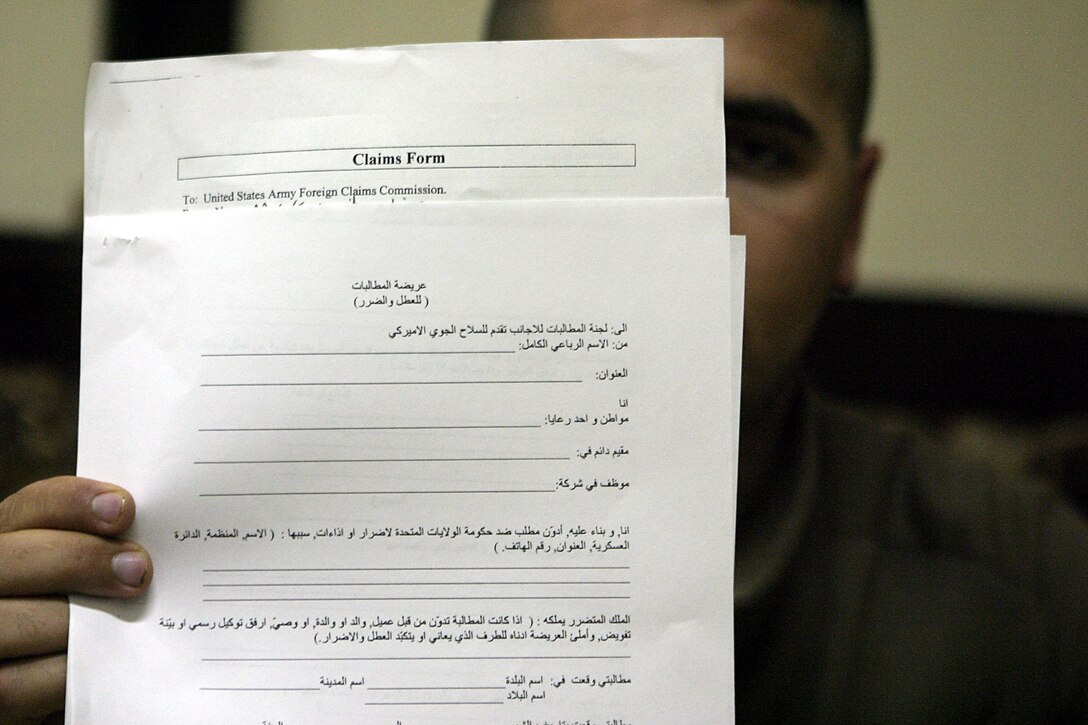 Claims Form
To: United States Army Foreign Claims Commission.
عريضة المطالبات
( للعطل والضرر)
الى: لجنة المطالبات للاجانب تقدم للسلاح الجوي الاميركي
من: الاسم الرباعي الكامل:
العنوان:
انا
مواطن و احد رعايا:
مقيم دائم في:
موظف في شركة:
انا, و بناء عليه, أدوّن مطلب ضد حكومة الولايات المتحدة لاضرار او اذاءات, سببها : ( الاسم, المنظمة, الدائرة
العسكرية, العنوان, رقم الهاتف. )
الملك المتضرر يملكه : ( اذا كانت المطالبة تدوّن من قبل عميل, والد او والدة, او وصيّ, ارفق توكيل رسمي او بيّنة
تفويض, وأملئ العريضة ادناه للطرف الذي يعاني او يتكبّد العطل والاضرار.)
مطالبتي وقعت في: اسم البلدة اسم المدينة
اسم البلاد